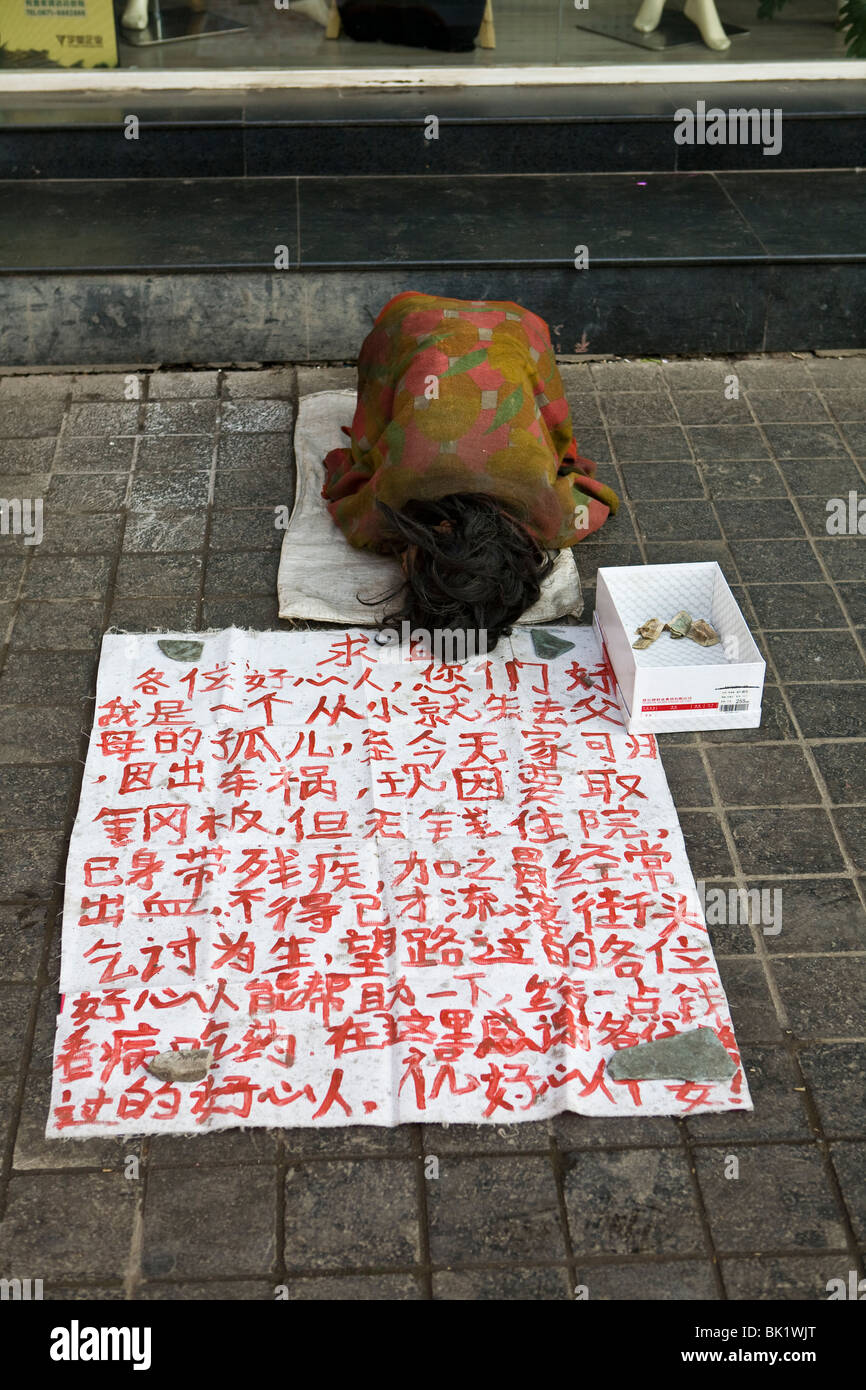 求
各位好心人,您们好
我是一个从小就失去父
母的孤儿,至今无家可归
,因出车祸,现因要取
钢板,但无钱住院,
已身带残疾,加之胃经常
出血,不得已才流落街头
乞讨为生,望路过的各位
好心人能帮助一下,给一点钱
看病吃药 在这里感谢各位
过的好心人,祝好心人 安!
alamy
Image ID: BK1WJT
www.alamy.com